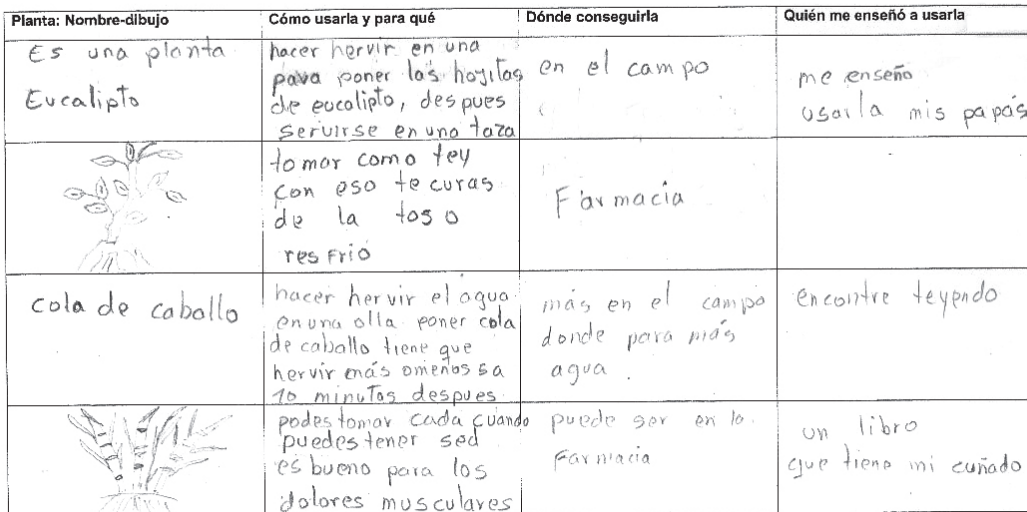 Planta: Nombre-dibujo
Cómo usarla y para qué
Dónde conseguirla
Quién me enseñó a usarla
Es una planta
Eucalipto
hacer hervir en una
pava poner las hojitas
de eucalipto, despues
servirse en una taza
en el campo
me enseño
usarla mis papás
tomar como tey
con eso te curas
de la tos o
resfrio
Farmacia
cola de caballo
hacer hervir el agua
en una olla poner cola
de caballo tiene que
hervir más omenos 5 a
10 minutos despues
más en el campo
donde para más
agua.
encontre leyendo
podes tomar cada cuando
puedes tener sed
es bueno para los
dolores musculares
puede ser en la
Farmacia
un libro
que tiene mi cuñado